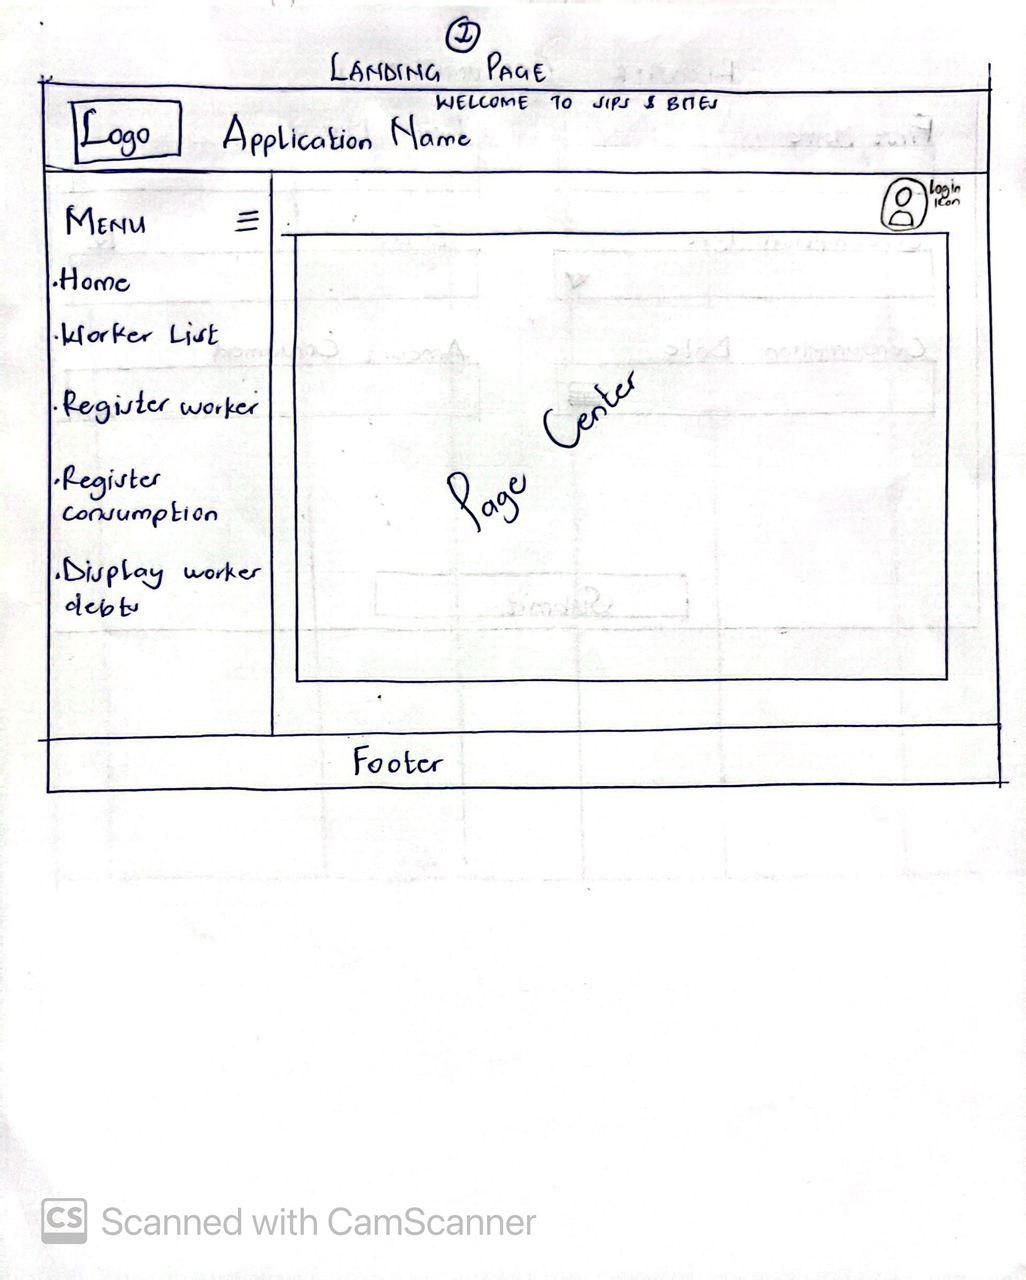 1
LANDING PAGE
WELCOME TO SIPS & BITES
Logo
Application Name
login
icon
MENU
·Home
·Worker List
·Register worker
·Register
consumption
·Display worker
debts
Page Center
Footer
CS Scanned with CamScanner